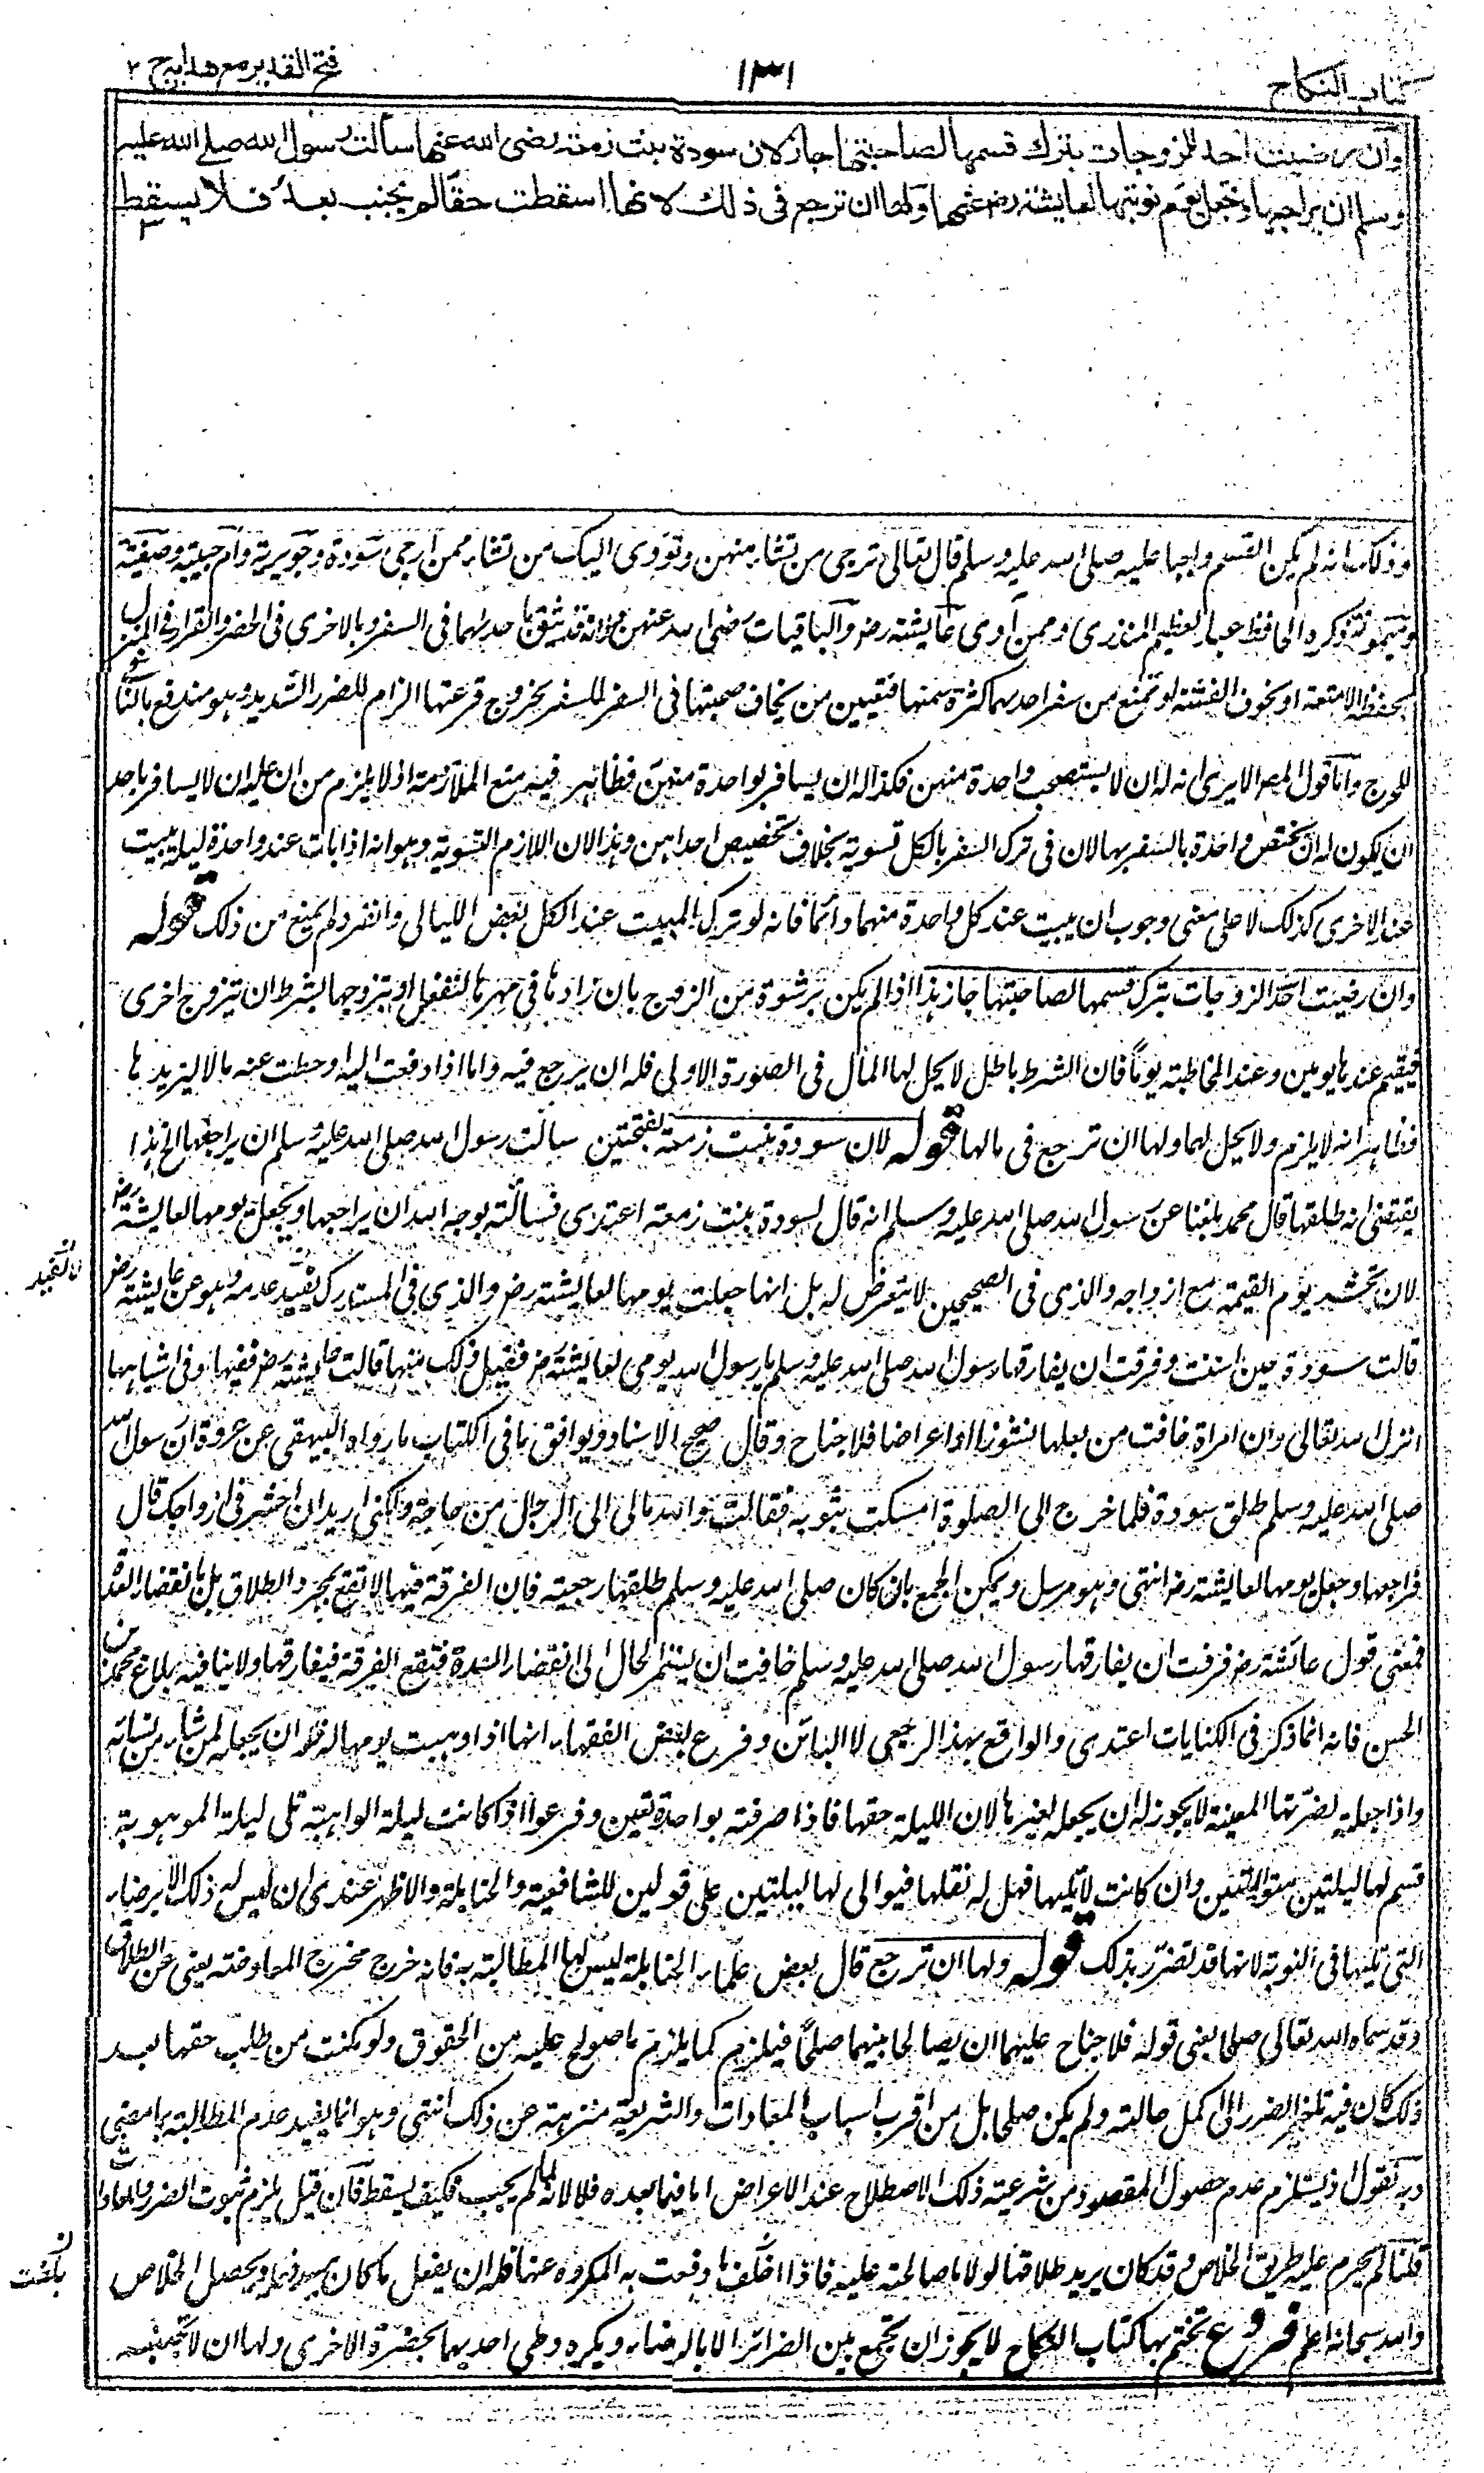 كتاب النكاح
١٣١
فتح القدير مع هدايه ج ٢
وان رضيت احد الزوجات بترك قسمها لصاحبتها جاز لان سودة بنت زمعة رضى الله عنها سألت رسول الله صلے الله عليه
وسلم ان يراجعها وتجعل يوم نوبتها لعايشة رضى عنها ولها ان ترجع فى ذلك لانها اسقطت حقا لم يجب بعد فلا يسقط
وذلك انه لم يكن القسم واجبا عليه صلى الله عليه وسلم قال تعالى ترجى من تشاء منهن وتؤوى اليك من تشاء ممن ارجى سودة وجويرية وام حبيبة وصفية
وميمونة ذكره الحافظ عبد العظيم المنذرى وممن آوى عايشة رض والباقيات رضى الله عنهن ولانه قد يثق باحديهما فى السفر وبالاخرى فى الحضر والقرار فى المنزل
لحفظ الامتعة او لخوف الفتنة او تمنع من سفر احديهما كثرة سمنها فتعيين من يخاف صحبتها فى السفر للسفر بخروج قرعتها الزام للضرر الشديد وهو مندفع بالنافى
للحرج واما قول المص الا يرى انه له ان لا يستصحب واحدة منهن فكذا له ان يسافر بواحدة منهن فظاهر فيه منع الملازمة اذ لا يلزم من ان عليه ان لا يسافر باحد
ان يكون له ان يختص واحدة بالسفر بها لان فى ترك السفر بالكل تسوية بخلاف تخصيص احداهن وهذا لان اللازم التسوية وهو انه اذا بات عند واحدة ليلة يبيت
عند الاخرى كذلك لا على معنى وجوب ان يبيت عند كل واحدة منهما دائما فانه لو ترك المبيت عند الكل بعض الليالى وانفرد لم يمنع من ذلك قوله
وان رضيت احد الزوجات بترك قسمها لصاحبتها جاز هذا اذا لم يكن برشوة من الزوج بان زادها فى مهرها لتفعل او تزوجها بشرط ان يتزوج اخرى
فيقيم عندها يومين وعند المخاطبة يوما فان الشرط باطل لا يحل لها المال فى الصورة الاولى فله ان يرجع فيه واما اذا دفعت اليه او حطت عنه مالا ليزيدها
فظاهر انه لا يلزم ولا يحل لهما ولها ان ترجع فى مالها قوله لان سودة بنت زمعة بفتحتين سالت رسول الله صلى الله عليه وسلم ان يراجعها الخ هذا
يقتضى انه طلقها قال محمد بلغنا عن رسول الله صلى الله عليه وسلم انه قال لسودة بنت زمعة اعتدى فسألته بوجه الله ان يراجعها ويجعل يومها لعايشة رض
لان تحشر يوم القيمة مع ازواجه والذى فى الصحيحين لا يتعرض له بل انها جعلت يومها لعايشة رض والذى فى المستدرك يفيد عدمه وهو عن عايشة رض
قالت سودة حين اسنت وفرقت ان يفارقها رسول الله صلى الله عليه وسلم يا رسول الله يومى لعايشة رض فقبل ذلك منها قالت عايشة رض ففيها وفى اشباهها
انزل الله تعالى وان امراة خافت من بعلها نشوزا او اعراضا فلا جناح وقال صحيح الاسناد ويوافق ما فى الكتاب ما رواه البيهقى عن عروة ان رسول الله
صلى الله عليه وسلم طلق سودة فلما خرج الى الصلوة امسكت بثوبه فقالت والله مالى الى الرجال من حاجة ولكنى اريد ان احشر فى ازواجك قال
فراجعها وجعل يومها لعايشة رض انتهى وهو مرسل ويمكن الجمع بان كان صلى الله عليه وسلم طلقها رجعية فان الفرقة فيها لا تقع بمجرد الطلاق بل بانقضاء العدة
فمعنى قول عائشة رض فرقت ان يفارقها رسول الله صلى الله عليه وسلم خافت ان يستمر الحال الى انقضاء العدة فتقع الفرقة فيفارقها ولا ينافيه بلاغ محمد بن
الحسن فانه انما ذكر فى الكنايات اعتدى والواقع بهذا الرجعى لا البائن وفرع بعض الفقهاء انها اذا وهبت يومها له فله ان يجعله لمن شاء من نسائه
واذا جعلته لضرتها المعينة لا يجوز له ان يجعله لغيرها لان الليلة حقها فاذا صرفته بواحدة تعين وفرعوا اذا كانت ليلة الواهبة تلى ليلة الموهوبة
قسم لها ليلتين متواليتين وان كانت لا تليها فهل له نقلها فيوالى لها ليلتين على قولين للشافعية والحنابلة والاظهر عندى ان ليس له ذلك الا برضاء
التى تليها فى النوبة لانها قد تتضرر بذلك قوله ولها ان ترجع قال بعض علماء الحنابلة ليس لها المطالبة به فانه خرج مخرج المعاوضة يعنى عن الطلاق
وقد سماه الله تعالى صلحا يعنى قوله فلا جناح عليهما ان يصالحا بينهما صلحا فيلزم كما يلزم ما صولح عليه من الحقوق ولو مكنت من طلب حقها بعد
ذلك كان فيه تاخير الضرر الى اكمل حالته ولم يكن صلحا بل من اقرب اسباب المعادات والشريعة منزهة عن ذلك انتهى وهو انما يفيد عدم المطالبة بما مضى
وبه نقول اذ يستلزم عدم حصول المقصود من شرعية ذلك الاصطلاح عند الاعراض اما فيما بعده فلا لانه لم يجب فكيف يسقط فان قيل يلزم ثبوت الضرر والمعادات
قلنا لم يحرم عليه طريق الخلاص وقد كان يريد طلاقها لولا ما صالحته عليه فاذا اخلف ما دفعت به المكروه عنها فله ان يفعل ما كان يريد فعله ويحصل الخلاص
والله سبحانه اعلم فروع نختتم بها كتاب النكاح لا يجوز ان يجمع بين الضرائر الا بالرضاء ويكره وطى احديهما بحضرة الاخرى ولها ان لا تجيبه